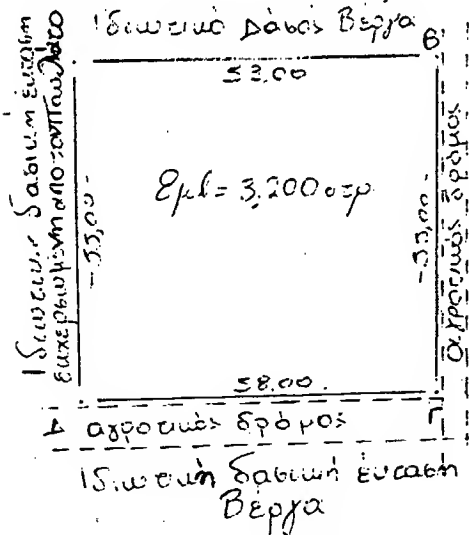 Ιδιωτικό Δάσος Βέργα
Β
Ιδιωτική δασική έκταση
εκχερσωμένη από τον Παυλάτο
55,00
Εμβ = 3,200 στρ
-55,00-
αγροτικός δρόμος
58.00.
Δ αγροτικός δρόμος Γ
Ιδιωτική δασική έκταση
Βέργα